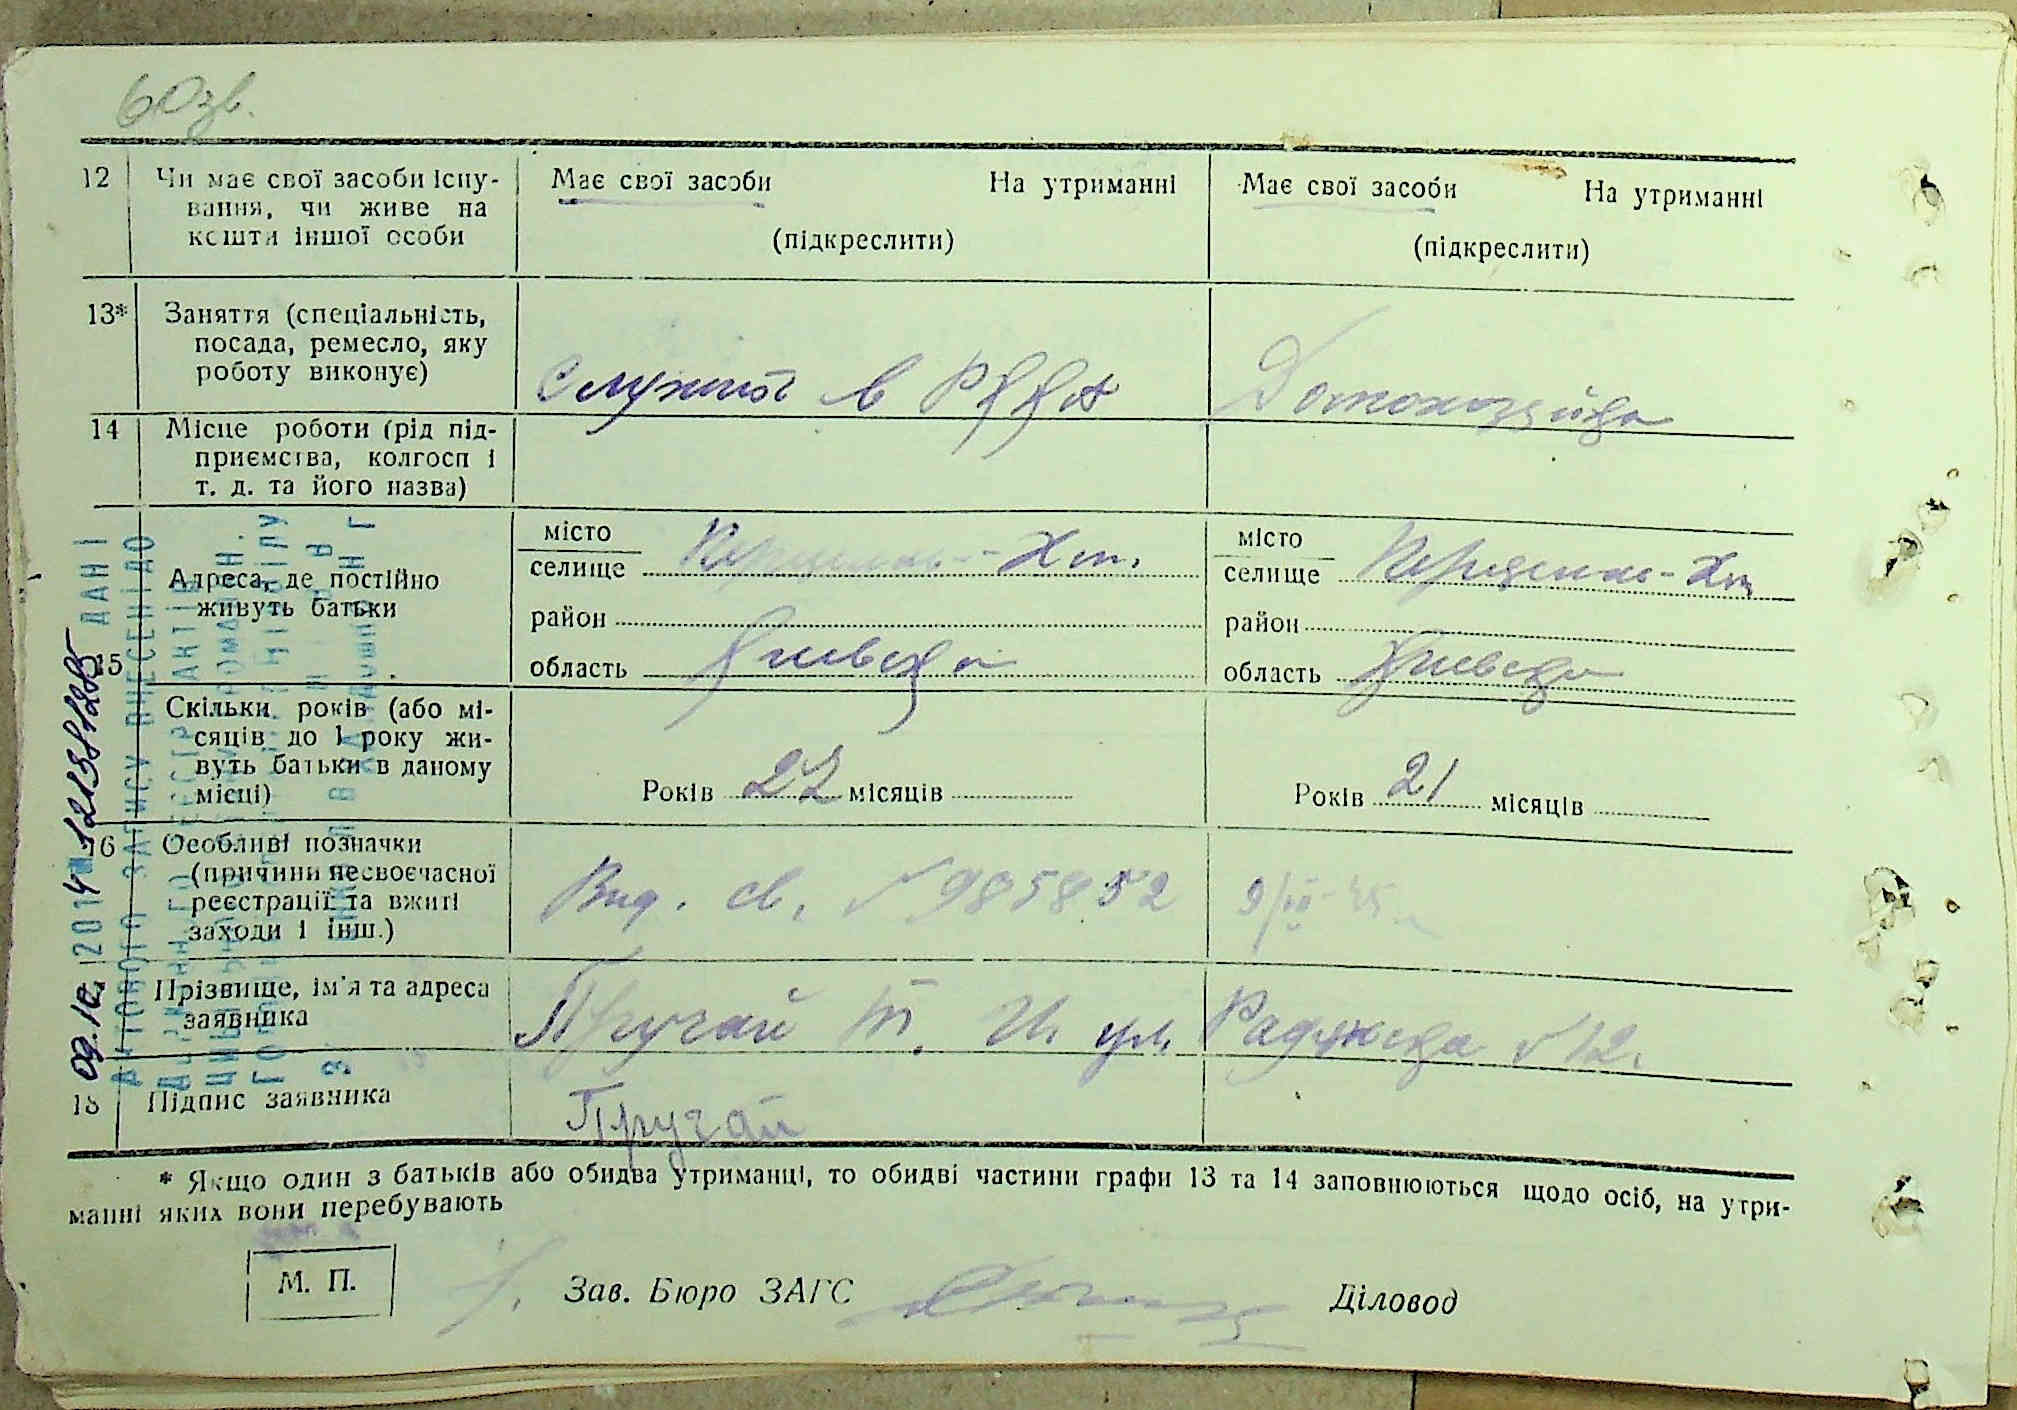 60 зв.
12 Чи має свої засоби існу-
вання, чи живе на
кошти іншої особи
Має свої засоби На утриманні
(підкреслити)
Має свої засоби На утриманні
(підкреслити)
13* Заняття (спеціальність,
посада, ремесло, яку
роботу виконує)
в РККА
Домохозяйка
14 Місце роботи (рід під-
приємства, колгосп і
т. д. та його назва)
15 Адреса, де постійно
живуть батьки
місто
селище
район
область Киевска
місто
селище
район
область Киевска
Скільки років (або мі-
сяців до 1 року жи-
вуть батьки в даному
місці)
Років 22 місяців
Років 21 місяців
16 Особливі позначки
(причини несвоєчасної
реєстрації та вжиті
заходи і інш.)
Вид. св. № 985852
Прізвище, ім'я та адреса
заявника
Пругай Т. И. ул. № 12.
18 Підпис заявника
Пругай
* Якщо один з батьків або обидва утриманці, то обидві частини графи 13 та 14 заповнюються щодо осіб, на утри-
манні яких вони перебувають
М. П.
Зав. Бюро ЗАГС
Діловод